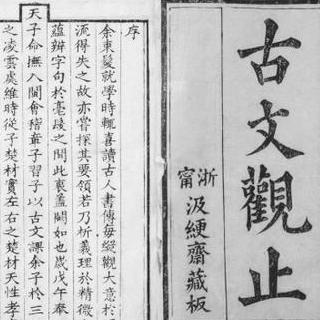 古文觀止
浙甯
汲綆齋藏板
序
余束髮就學時輒喜讀古人書傳每縱觀大意於
源得失之故亦嘗探其要領若乃析義理於精微
蘊辨字句於毫釐之間此衷蓋闕如也歲戊午奉
天子命撫八閩會稽章子習子以古文課余子於三
之凌雲處維時從子楚材實左右之楚材天性孝